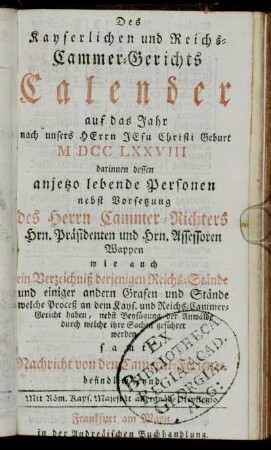 Des
Kayserlichen und Reichs-
Cammer-Gerichts
Calender
auf das Jahr
nach unsers HErrn JEsu Christi Geburt
M DCC LXXVIII
darinnen dessen
anjetzo lebende Personen
nebst Vorsetzung
des Herrn Cammer-Richters
Hrn. Präsidenten und Hrn. Assessoren
Wappen
wie auch
ein Verzeichniß derjenigen Reichs-Stände
und einiger andern Grafen und Stände
welche Proceß an dem Kays. und Reichs-Cammer-
Gericht haben, nebst Beyfügung der Anwälde
durch welche ihre Sachen geführet
werden
samt
Nachricht von den
befindl
Mit Röm. Kays. Majestät
Frankfurt am Mayn,
in der Andreäischen Buchhandlung.
EX
BIBLIOTHECA
REG. ACAD.
GEORGIÆ
AUG: